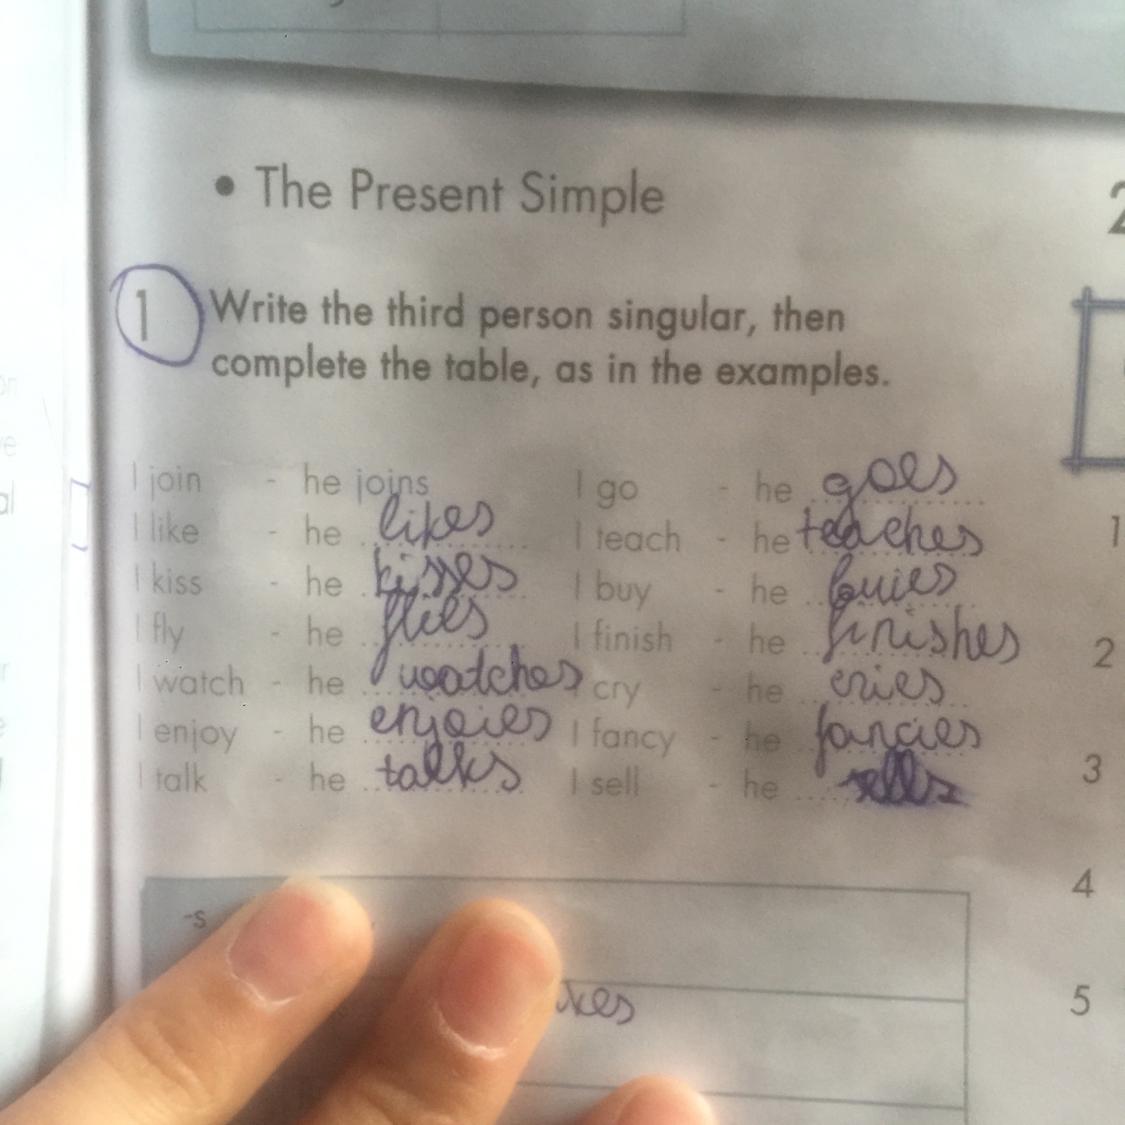 • The Present Simple
2
1 Write the third person singular, then
complete the table, as in the examples.
I join - he joins I go - he goes
I like - he likes I teach - he teaches
I kiss - he kisses I buy - he buies
I fly - he flies I finish - he finishes
I watch - he watches I cry - he cries
I enjoy - he enjoies I fancy - he fancies
I talk - he talks I sell - he sells
1
2
3
4
5
-s